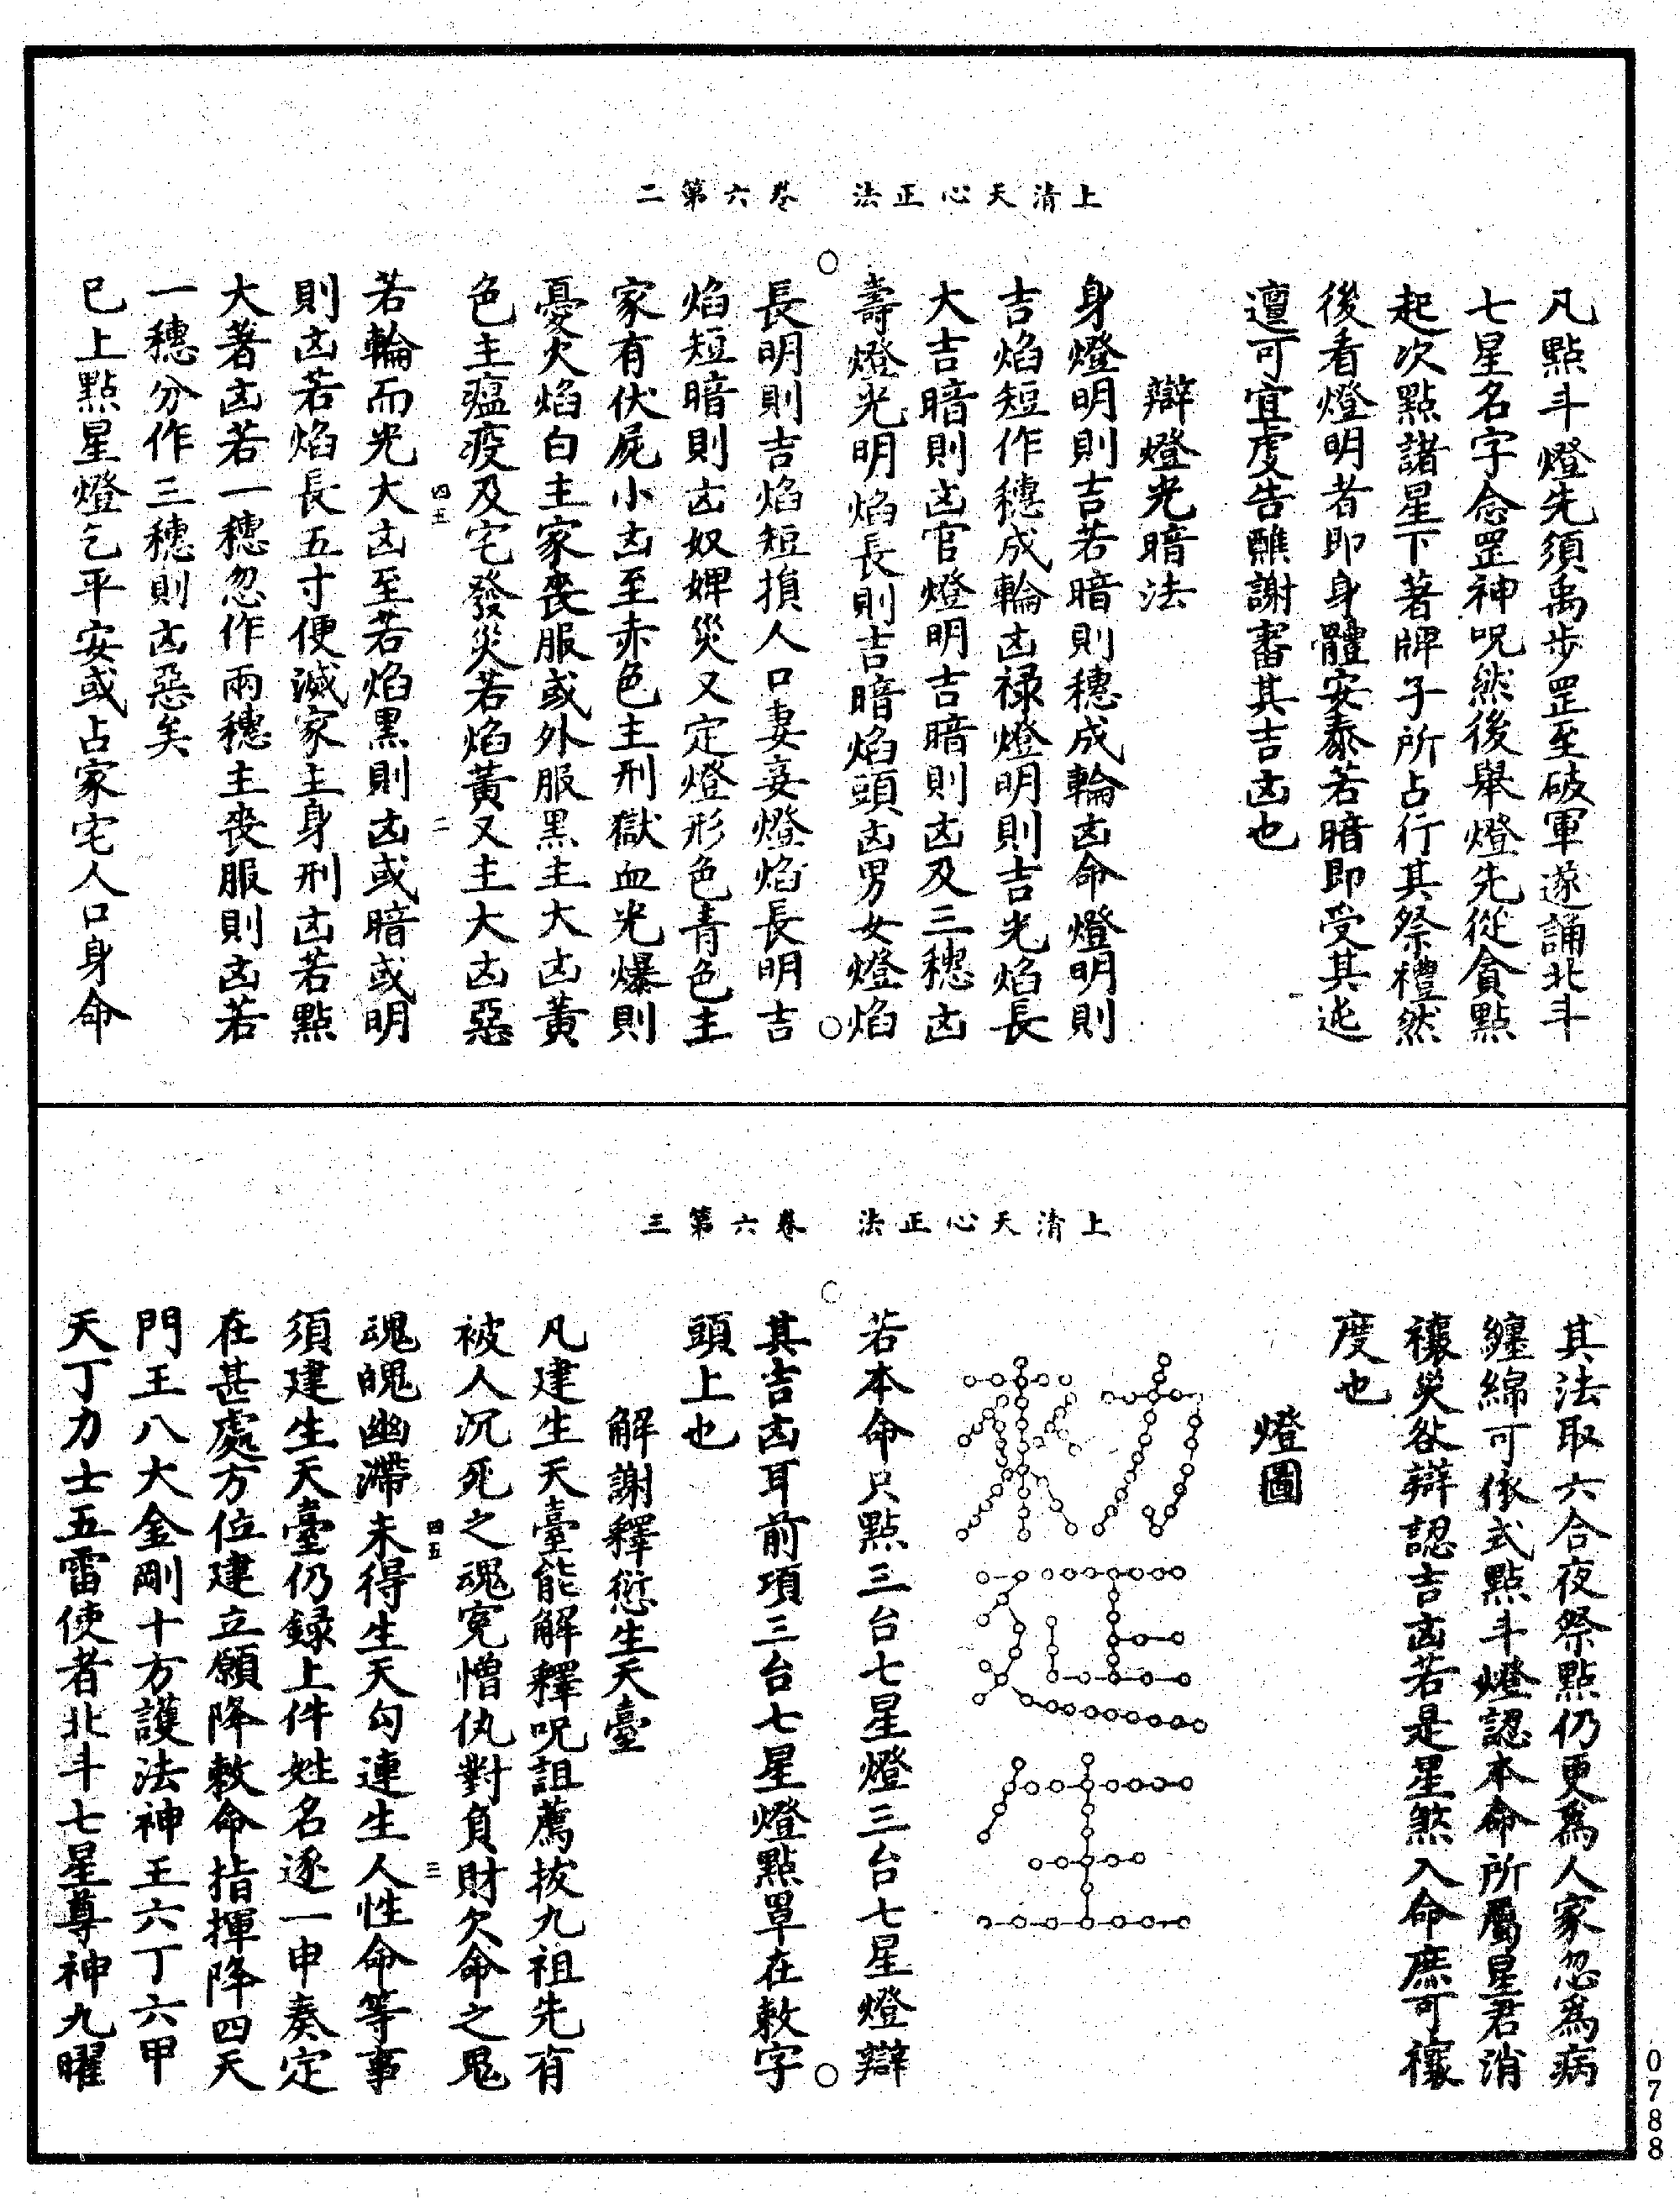 上清天心正法　卷六第二
凡點斗燈先須禹步罡至破軍遂誦北斗
七星名字念罡神呪然後舉燈先從貪點
起次點諸星下著牌子所占行其祭禮然
後看燈明者即身體安泰若暗即受其迍
邅可宜虔告醮謝書其吉凶也
辯燈光暗法
身燈明則吉若暗則穗成輪凶命燈明則
吉焰短作穗成輪凶祿燈明則吉光焰長
大吉暗則凶官燈明吉暗則凶及三穗凶
壽燈光明焰長則吉暗焰頭凶男女燈焰
長明則吉焰短損人口妻妾燈焰長明吉
焰短暗則凶奴婢災又定燈形色青色主
家有伏屍小凶至赤色主刑獄血光爆則
憂火焰白主家喪服或外服黑主大凶黃
色主瘟疫及宅發災若焰黃又主大凶惡
四五　二
若輪而光大凶至若焰黑則凶或暗或明
則凶若焰長五寸便滅家主身刑凶若點
大著凶若一穗忽作兩穗主喪服則凶若
一穗分作三穗則凶惡矣
巳上點星燈乞平安或占家宅人口身命
上清天心正法　卷六第三
其法取六合夜祭點仍更為人家忽為病
纏綿可依式點斗燈認本命所屬星君消
禳災谷辯認吉凶若是星煞入命庶可禳
度也
燈圖
若本命只點三台七星燈三台七星燈辯
其吉凶耳前項三台七星燈點罩在敕字
頭上也
解謝釋愆生天臺
凡建生天臺能解釋呪詛薦拔九祖先有
被人沉死之魂冤憎仇對負財欠命之鬼
四五　三
魂魄幽滯未得生天勾連生人性命等事
須建生天臺仍錄上件姓名逐一申奏定
在甚處方位建立願降敕命指揮降四天
門王八大金剛十方護法神王六丁六甲
天丁力士五雷使者北斗七星尊神九曜
0788